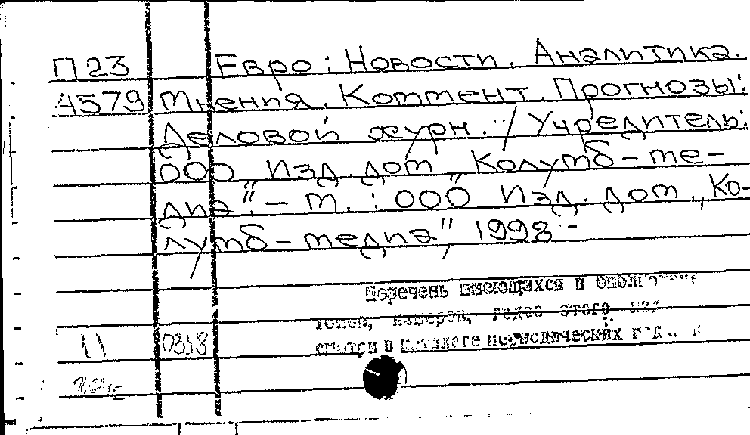 П23 Евро: Новости. Аналитика.
4579 Мнения. Коммент. Прогнозы:
Деловой журн. / Учредитель:
ООО „Изд. дом „Колумб-ме-
диа". - М.: ООО Изд. дом „Ко-
лумб-медиа", 1998 -
Перечень имеющихся в библиотеке
томов, номеров, годов этого
смотри в каталоге периодических
11 0318